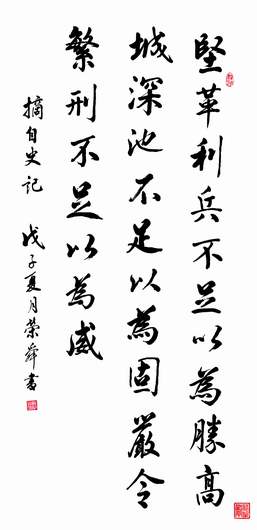 堅革利兵不足以為勝高
城深池不足以為固嚴令
繁刑不足以為威
摘自史記 戊子夏月榮舜書